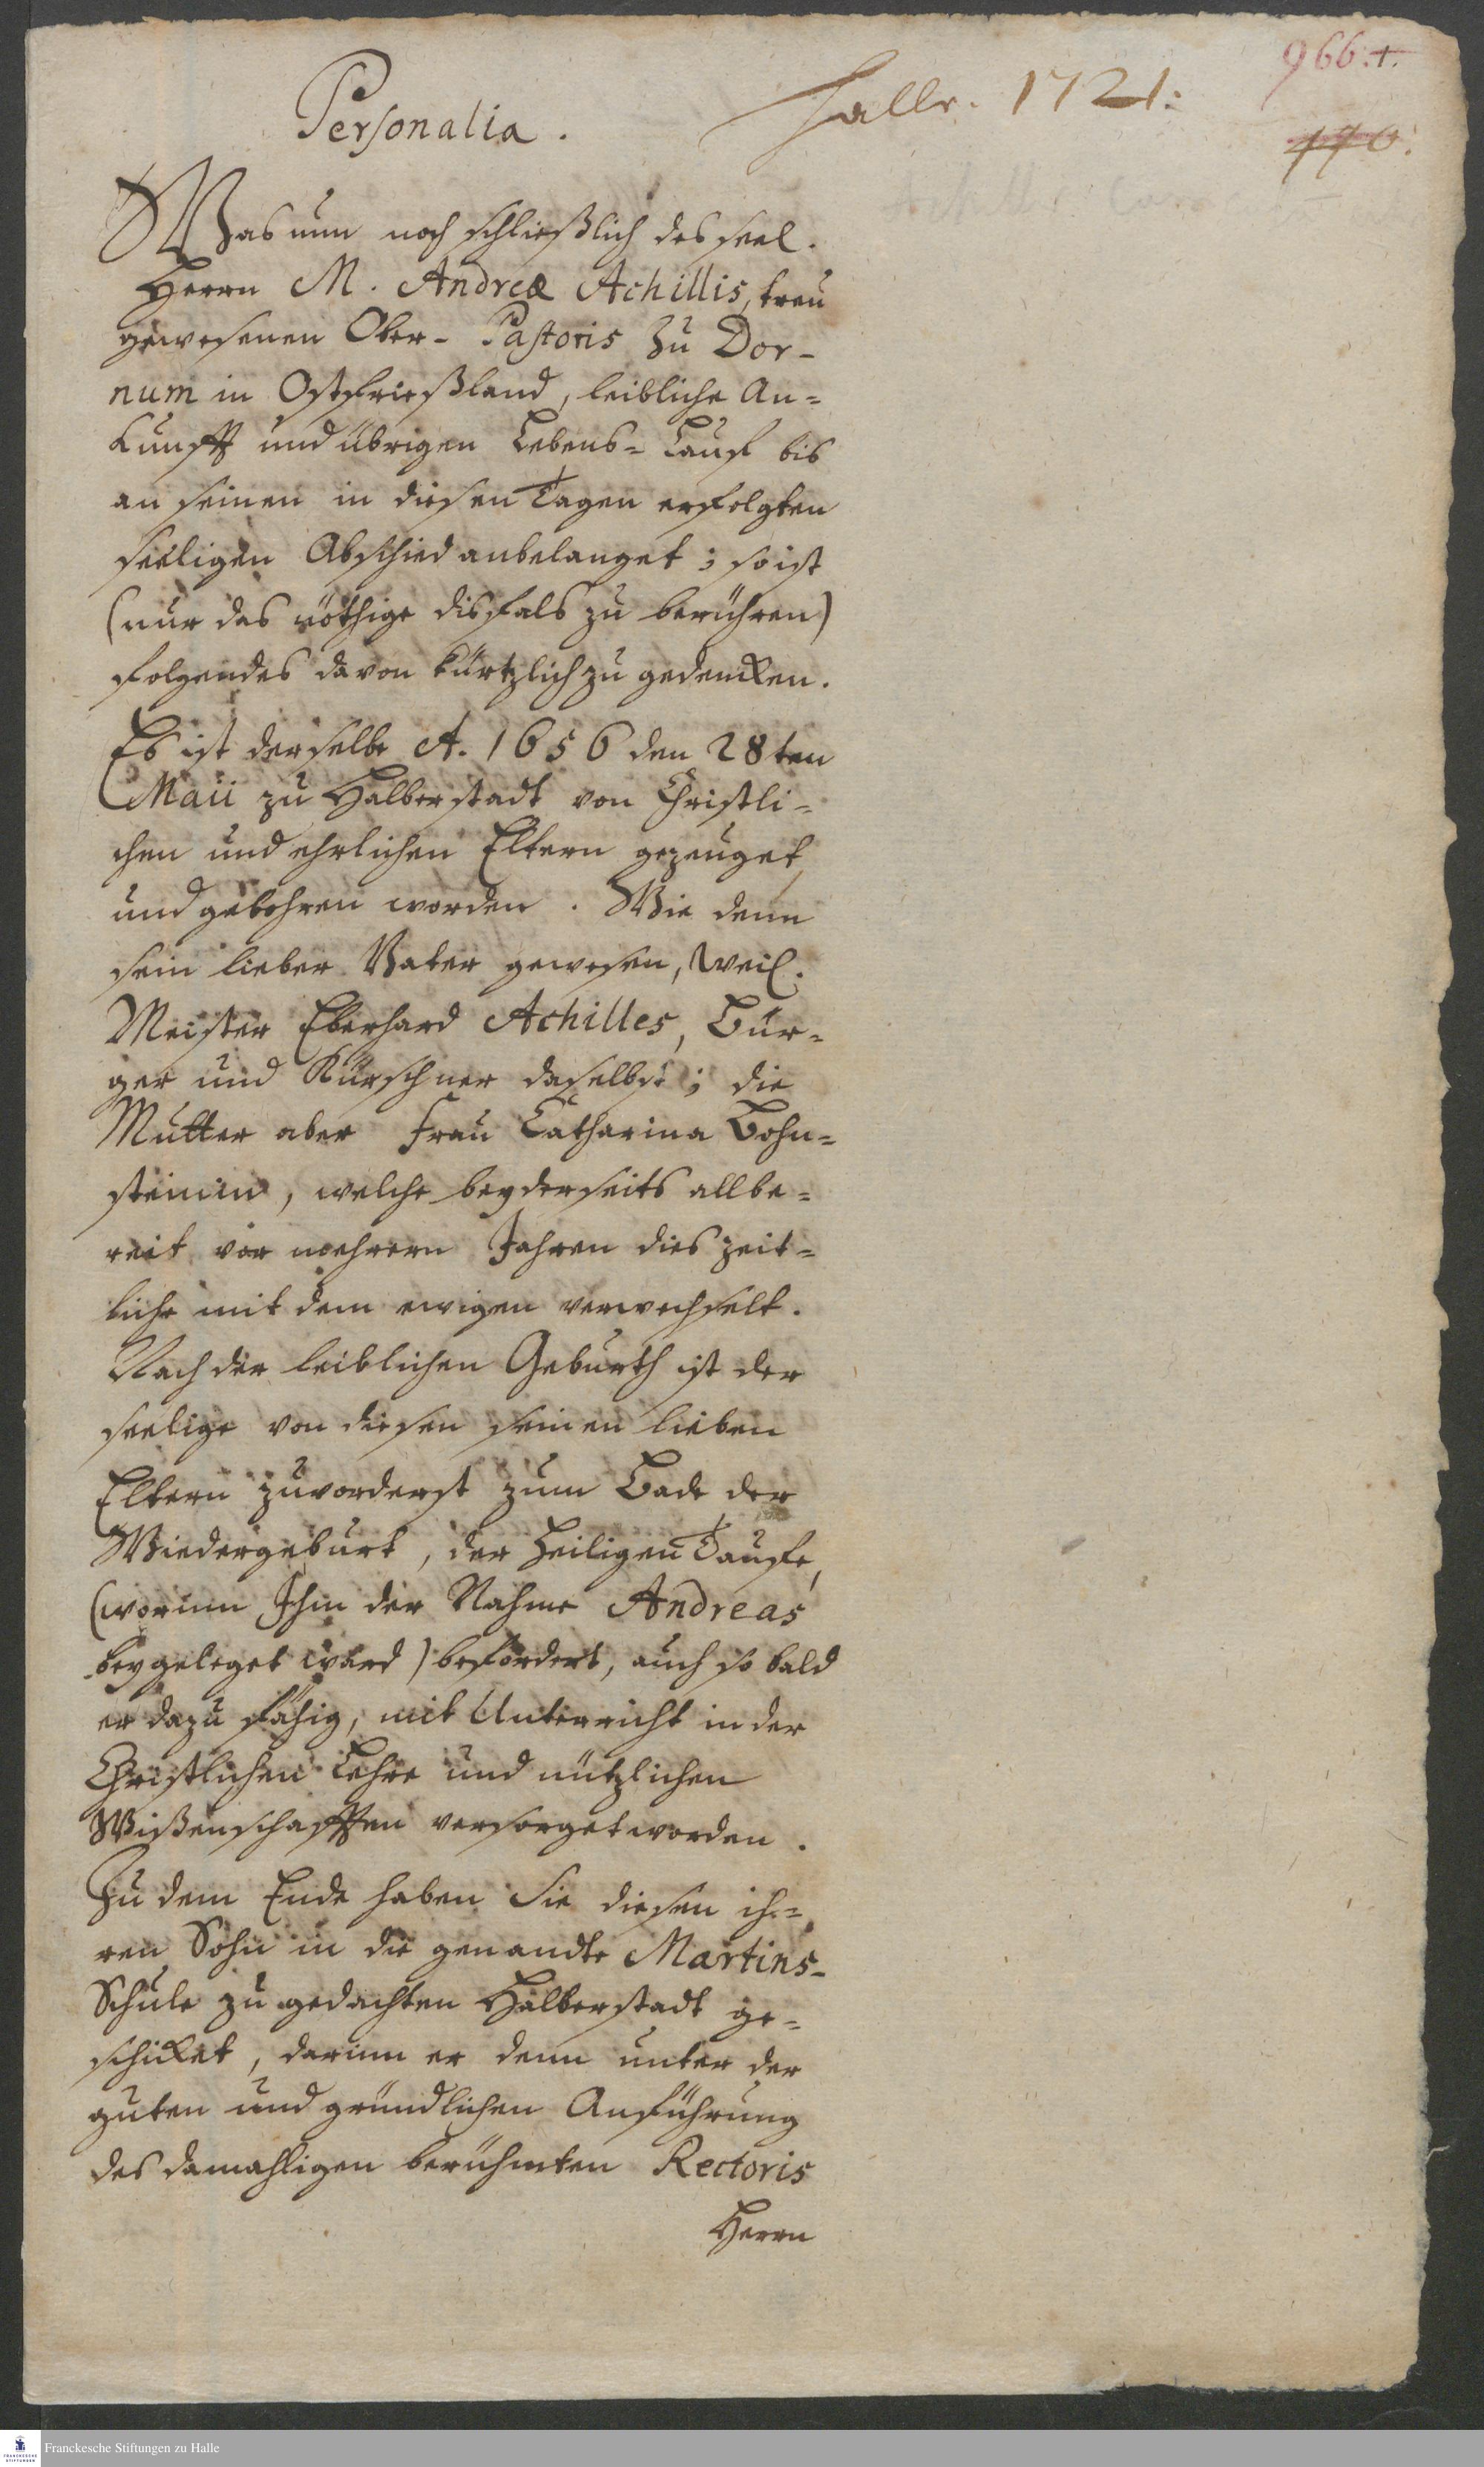 966.
Halle. 1721.
170.
Personalia.
Was nun noch schließlich des seel.
Herrn M. Andreæ Achillis, treu
gewesenen Ober-Pastoris zu Dor-
num in Ostfrießland, leibliche An=
kunfft und übrigen Lebens=Lauf bis
an seinen in diesen Tagen erfolgten
seeligen Abschied anbelanget; so ist
(nur das nöthige disfals zu berühren)
folgendes davon kürtzlich zu gedencken.
Es ist derselbe A. 1656 den 28ten
Maii zu Halberstadt von Christli=
chen und ehrlichen Eltern gezeuget
und gebohren worden. Wie denn
sein lieber Vater gewesen, Weil.
Meister Eberhard Achilles, Bür=
ger und Kürschner daselbst; die
Mutter aber Frau Catharina Bohn=
steinin, welche beyderseits allbe=
reit vor mehrern Jahren dies zeit=
liche mit dem ewigen verwechselt.
Nach der leiblichen Geburth ist der
seelige von diesen seinen lieben
Eltern zuvorderst zum Bade der
Wiedergeburt, der heiligen Tauffe,
(worinn Ihm der Nahme Andreas
beygeleget ward) befördert, auch so bald
er dazu fähig, mit Unterricht in der
Christlichen Lehre und nützlichen
Wißenschafften versorget worden.
Zu dem Ende haben Sie diesen ih=
ren Sohn in die genandte Martins-
Schule zu gedachten Halberstadt ge=
schicket, darinn er denn unter der
guten und gründlichen Anführung
des damahligen berühmten Rectoris
Herrn
FRANCKESCHE STIFTUNGEN
Franckesche Stiftungen zu Halle